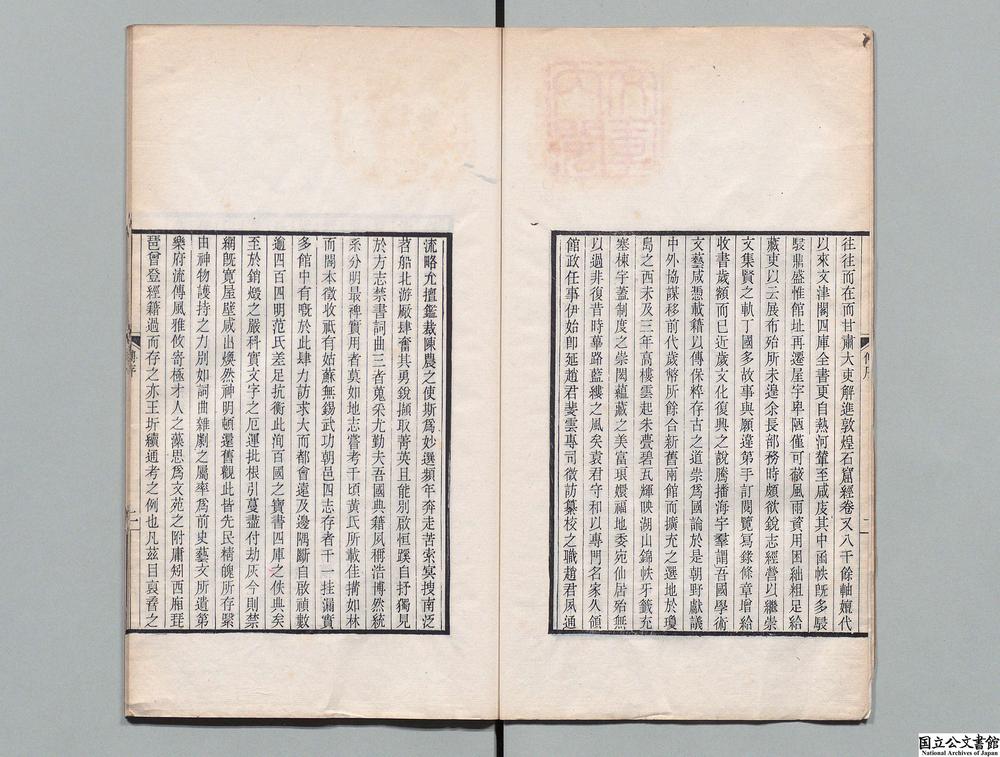 往往而在而甘肅大吏解進敦煌石窟經卷又八千餘軸嬗代
以來文津閣四庫全書更自熱河輦至咸庋其中函帙既多駸
駸鼎盛惟館址再遷屋宇卑陋僅可蔽風雨資用困絀粗足給
藏吏以云展布殆所未遑余長部務時頗欲銳志經營以繼崇
文集賢之軌丁國多故事與願違第手訂閱覽寫錄條章增給
收書歲額而已近歲文化復興之說騰播海宇羣謂吾國學術
文藝咸憑載籍以傳保粹存古之道祟爲國論於是朝野獻議
中外協謀移前代歲幣所餘合新舊南館而擴充之選地於瓊
島之西未及三年高樓雲起朱甍碧瓦輝映湖山錦帙牙籤充
塞棟宇蓋制度之崇閎蘊藏之美富琅嬛福地委宛仙居殆無
以過非復昔時蓽路藍縷之風矣袁君守和以專門名家久領
館政任事伊始卽延趙君斐雲專司徵訪纂校之職趙君夙通
流略尤擅鑑裁陳農之使斯爲妙選頻年奔走苦索冥搜南泛
苕船北游廠肆奮其勇銳擷取菁英且能別啟恒蹊自抒獨見
於方志禁書詞曲三者蒐釆尤勤夫吾國典籍夙稱浩博然統
系分明最裨實用者莫如地志嘗考千頃黃氏所載佳搆如林
而閣本徵收祇有姑蘇無錫武功朝邑四志存者千一挂漏實
多館中有慨於此肆力訪求大而都會遠及邊隅斷自啟禎數
逾四百四明范氏差足抗衡此洵百國之寶書四庫之佚典矣
至於銷燬之嚴科實文字之厄運批根引蔓盡付劫灰今則禁
網既寬屋壁咸出煥然神明頓還舊觀此皆先民精魄所存緊
由神物護持之力別如詞曲雜劇之屬率爲前史藝文所遺第
樂府流傳風雅攸寄極才人之藻思爲文苑之附庸矧西廂琵
琶曾登經籍過而存之亦王圻續通考之例也凡茲目袁香之
傅序
二
國立公文書館
National Archives of Japan